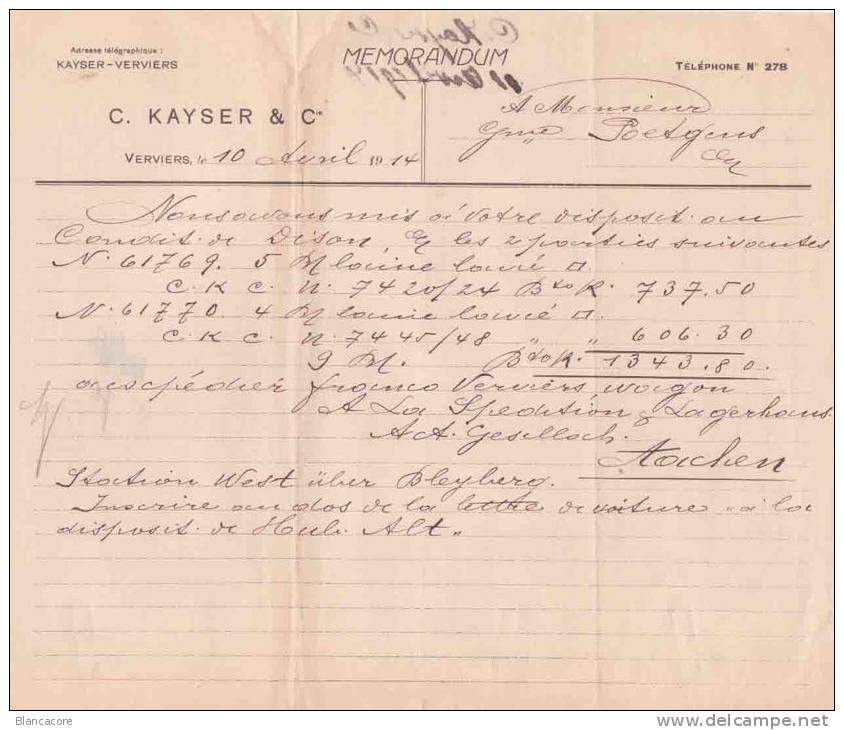 Adresse télégraphique :
KAYSER-VERVIERS
MEMORANDUM
TÉLÉPHONE N° 278
C. KAYSER & Cie
VERVIERS, le 10 Avril 1914
A Monsieur
Gme Poetgens
Nous avons mis à votre disposit. au
Condit. de Dison, les 2 parties suivantes
N. 61769. 5 Bl laine lavée
C. K C. N. 7420/24 Bto K. 737.50
N. 61770. 4 Bl laine lavée
C. K. C. N. 7445/48 " " 606.30
9 Bl. Bto K. 1343.80.
à expédier franco Verviers, wagon
A La Spedition & Lagerhaus.
Act. Gesellsch.
Aachen
Station West über Bleyberg.
Inscrire au dos de la lettre de voiture „ à la
disposit. de Hub. Alt „
Blancacore
delcampe.net